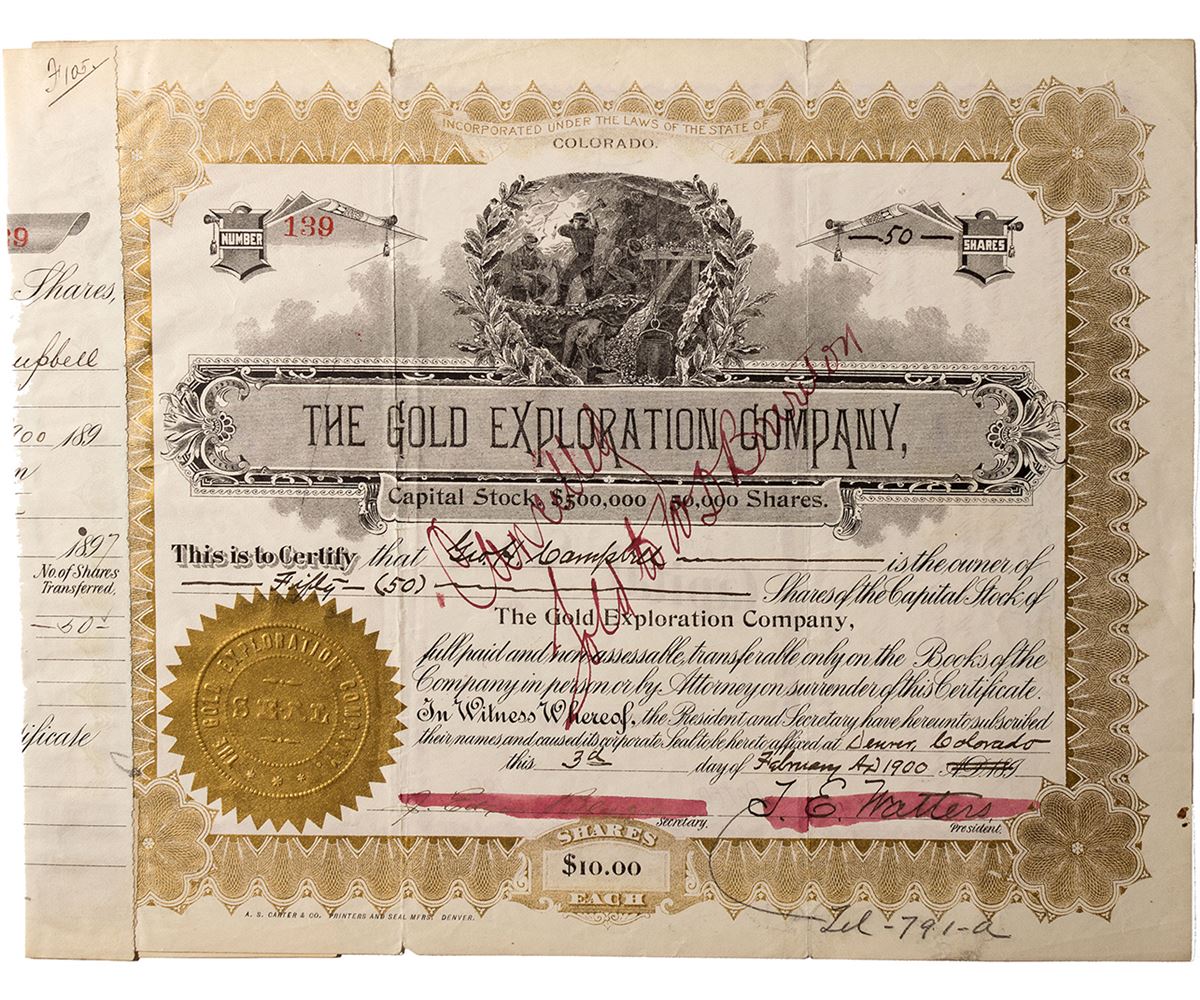 F 105.
39
Shares,
pbell
900 189
n
1897
No. of Shares
Transferred,
—50—
ificate
INCORPORATED UNDER THE LAWS OF THE STATE OF
COLORADO.
NUMBER 139
—50— SHARES
THE GOLD EXPLORATION COMPANY,
Capital Stock $500,000 50,000 Shares.
Cancelled
Sold to
This is to Certify that Geo. Campbell is the owner of
Fifty — (50) Shares of the Capital Stock of
The Gold Exploration Company,
full paid and non assessable, transferable only on the Books of the
Company in person or by Attorney on surrender of this Certificate.
In Witness Whereof, the President and Secretary have hereunto subscribed
their names and caused its corporate Seal to be hereto affixed at Denver, Colorado
this 3rd day of February AD 1900 A.D. 189
THE GOLD EXPLORATION COMPANY
SEAL
Secretary.
T. E. Watters
President.
SHARES
$10.00
EACH
A. S. CARTER & CO. PRINTERS AND SEAL MFRS. DENVER.
Lel-791-a